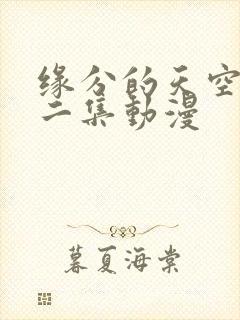 缘分的天空
二集動漫
暮夏海棠